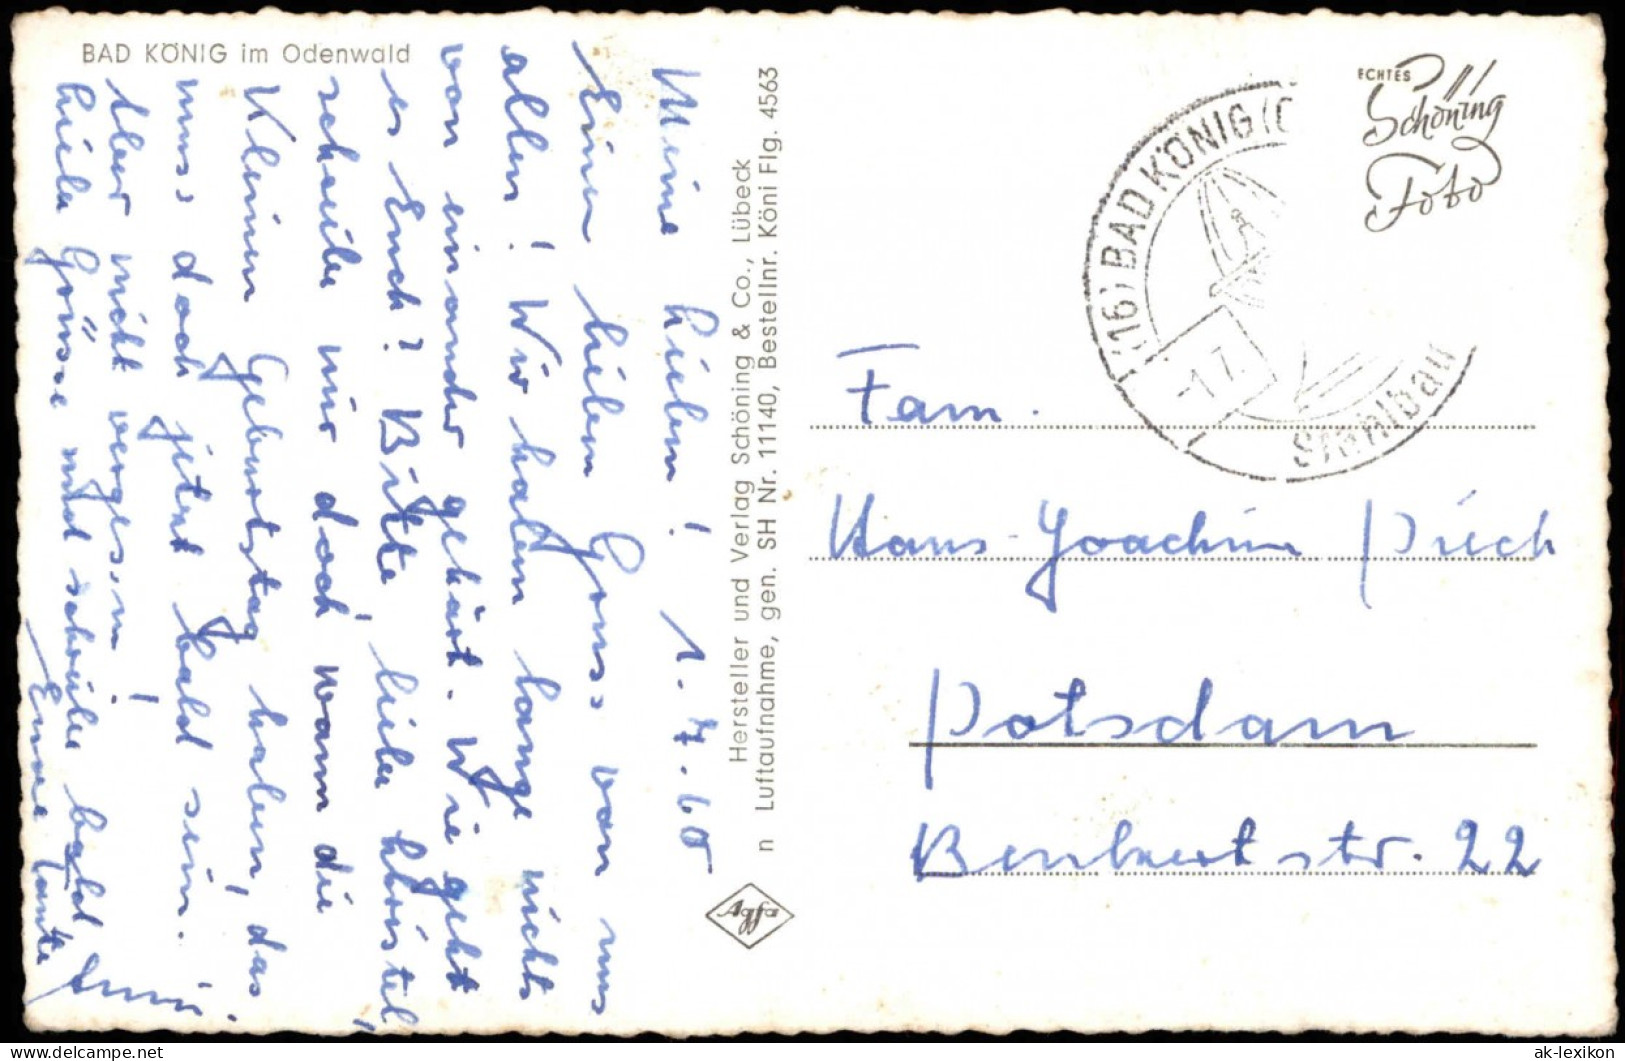 BAD KÖNIG im Odenwald
Meine Lieben! 1.7.60
Einen lieben Gruss von uns
allen! Wir haben lange nichts
von einander gehört. Wie geht
es Euch? Bitte, liebe
schreibe mir doch, wann die
Kleinen Geburtstag haben, das
muss doch jetzt bald sein.
Aber nicht vergessen!
Viele Grüsse und schreibe bald
Eure Tante
Hersteller und Verlag Schöning & Co., Lübeck
n Luftaufnahme, gen. SH Nr. 11140, Bestellnr. Köni Flg. 4563
Agfa
ECHTES
Schöning
Foto
(16) BAD KÖNIG (O
-1.7.
Stahlbad
Fam.
Hans-Joachim
Potsdam
str. 22
ak-lexikon